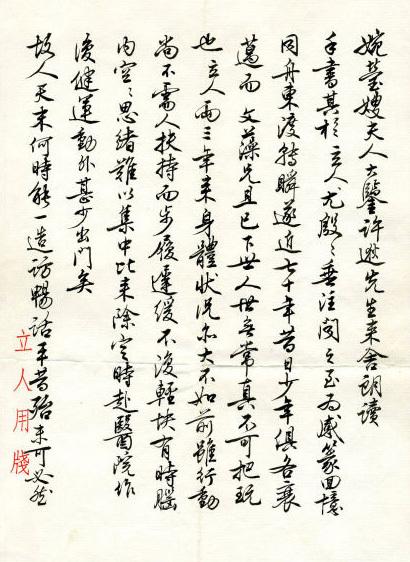 婉瑩嫂夫人大鑒許逖先生來舍朗讀
手書其於立人尤殷〻垂注聞之至為感篆回憶
同舟東渡轉瞬遂近七十年昔日少年俱各衰
邁而 文藻兄且已下世人世無常真不可把玩
也立人兩三年來身體狀況亦大不如前雖行動
尚不需人扶持而步履遲緩不復輕快有時腦
內空〻思緒難以集中比來除定時赴醫院作
復健運動外甚少出門矣
故人天末何時能一造訪暢話平昔殆未可必然
立人用牋